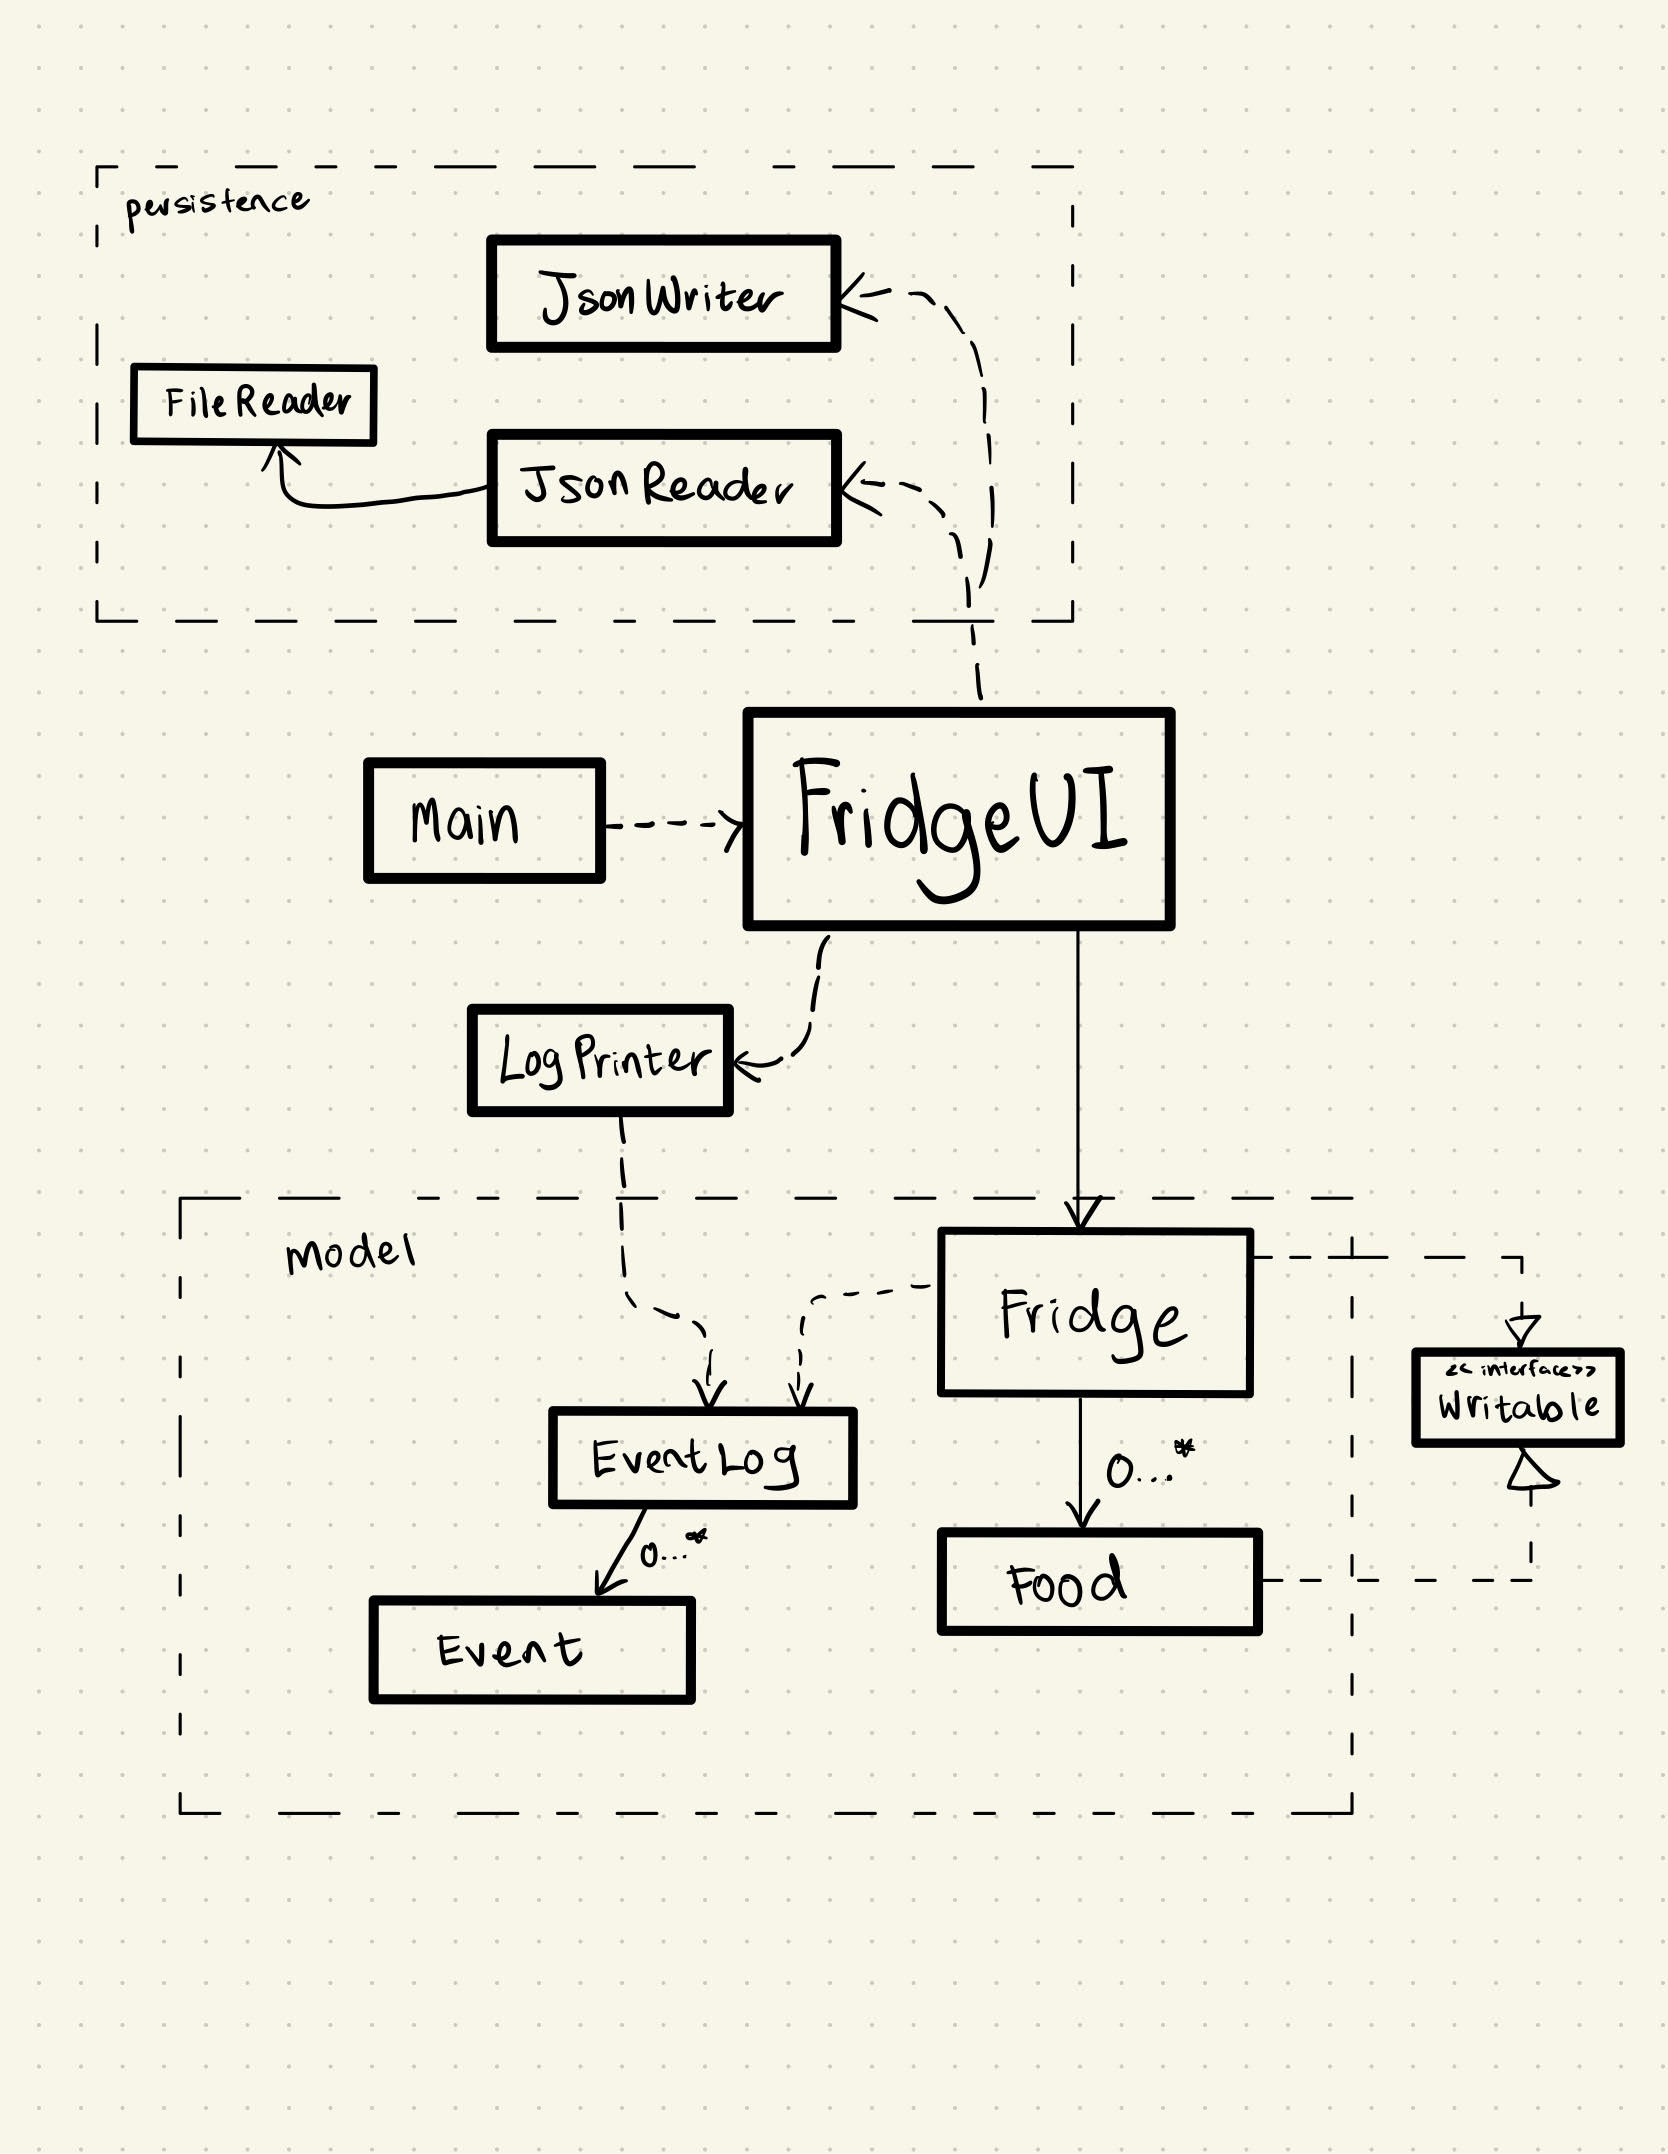 persistence
JsonWriter
FileReader
JsonReader
FridgeUI
Main
LogPrinter
model
Fridge
<< interface>>
Writable
0...*
EventLog
0...*
Food
Event